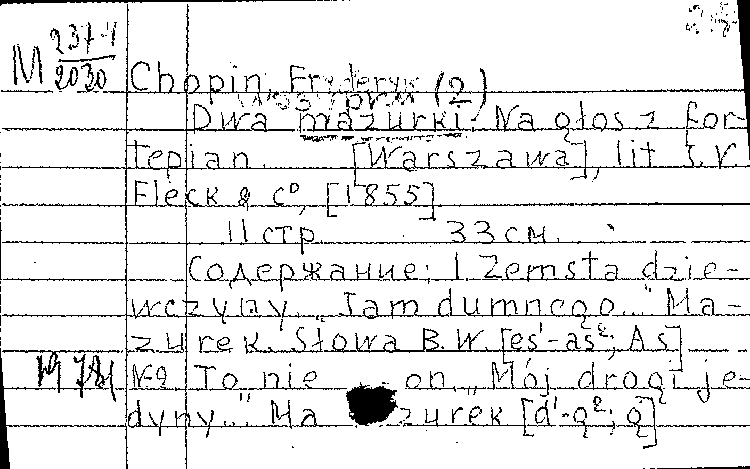 M 237-4
2030
Chopin, Fryderyk (2)
Dwa mazurki. Na głos z for-
tepian. [Warszawa], lit J. V
Fleck & Cº, [1855]
11 стр. 33 см.
Содержание: 1. Zemsta dzie-
wczyny. „Tam dumnego..." Ma-
zurek. Słowa B. W. [es¹-as²; As]
№2 To nie on. „Mój drogi je-
dyny..." Mazurek [d¹-g²; g]